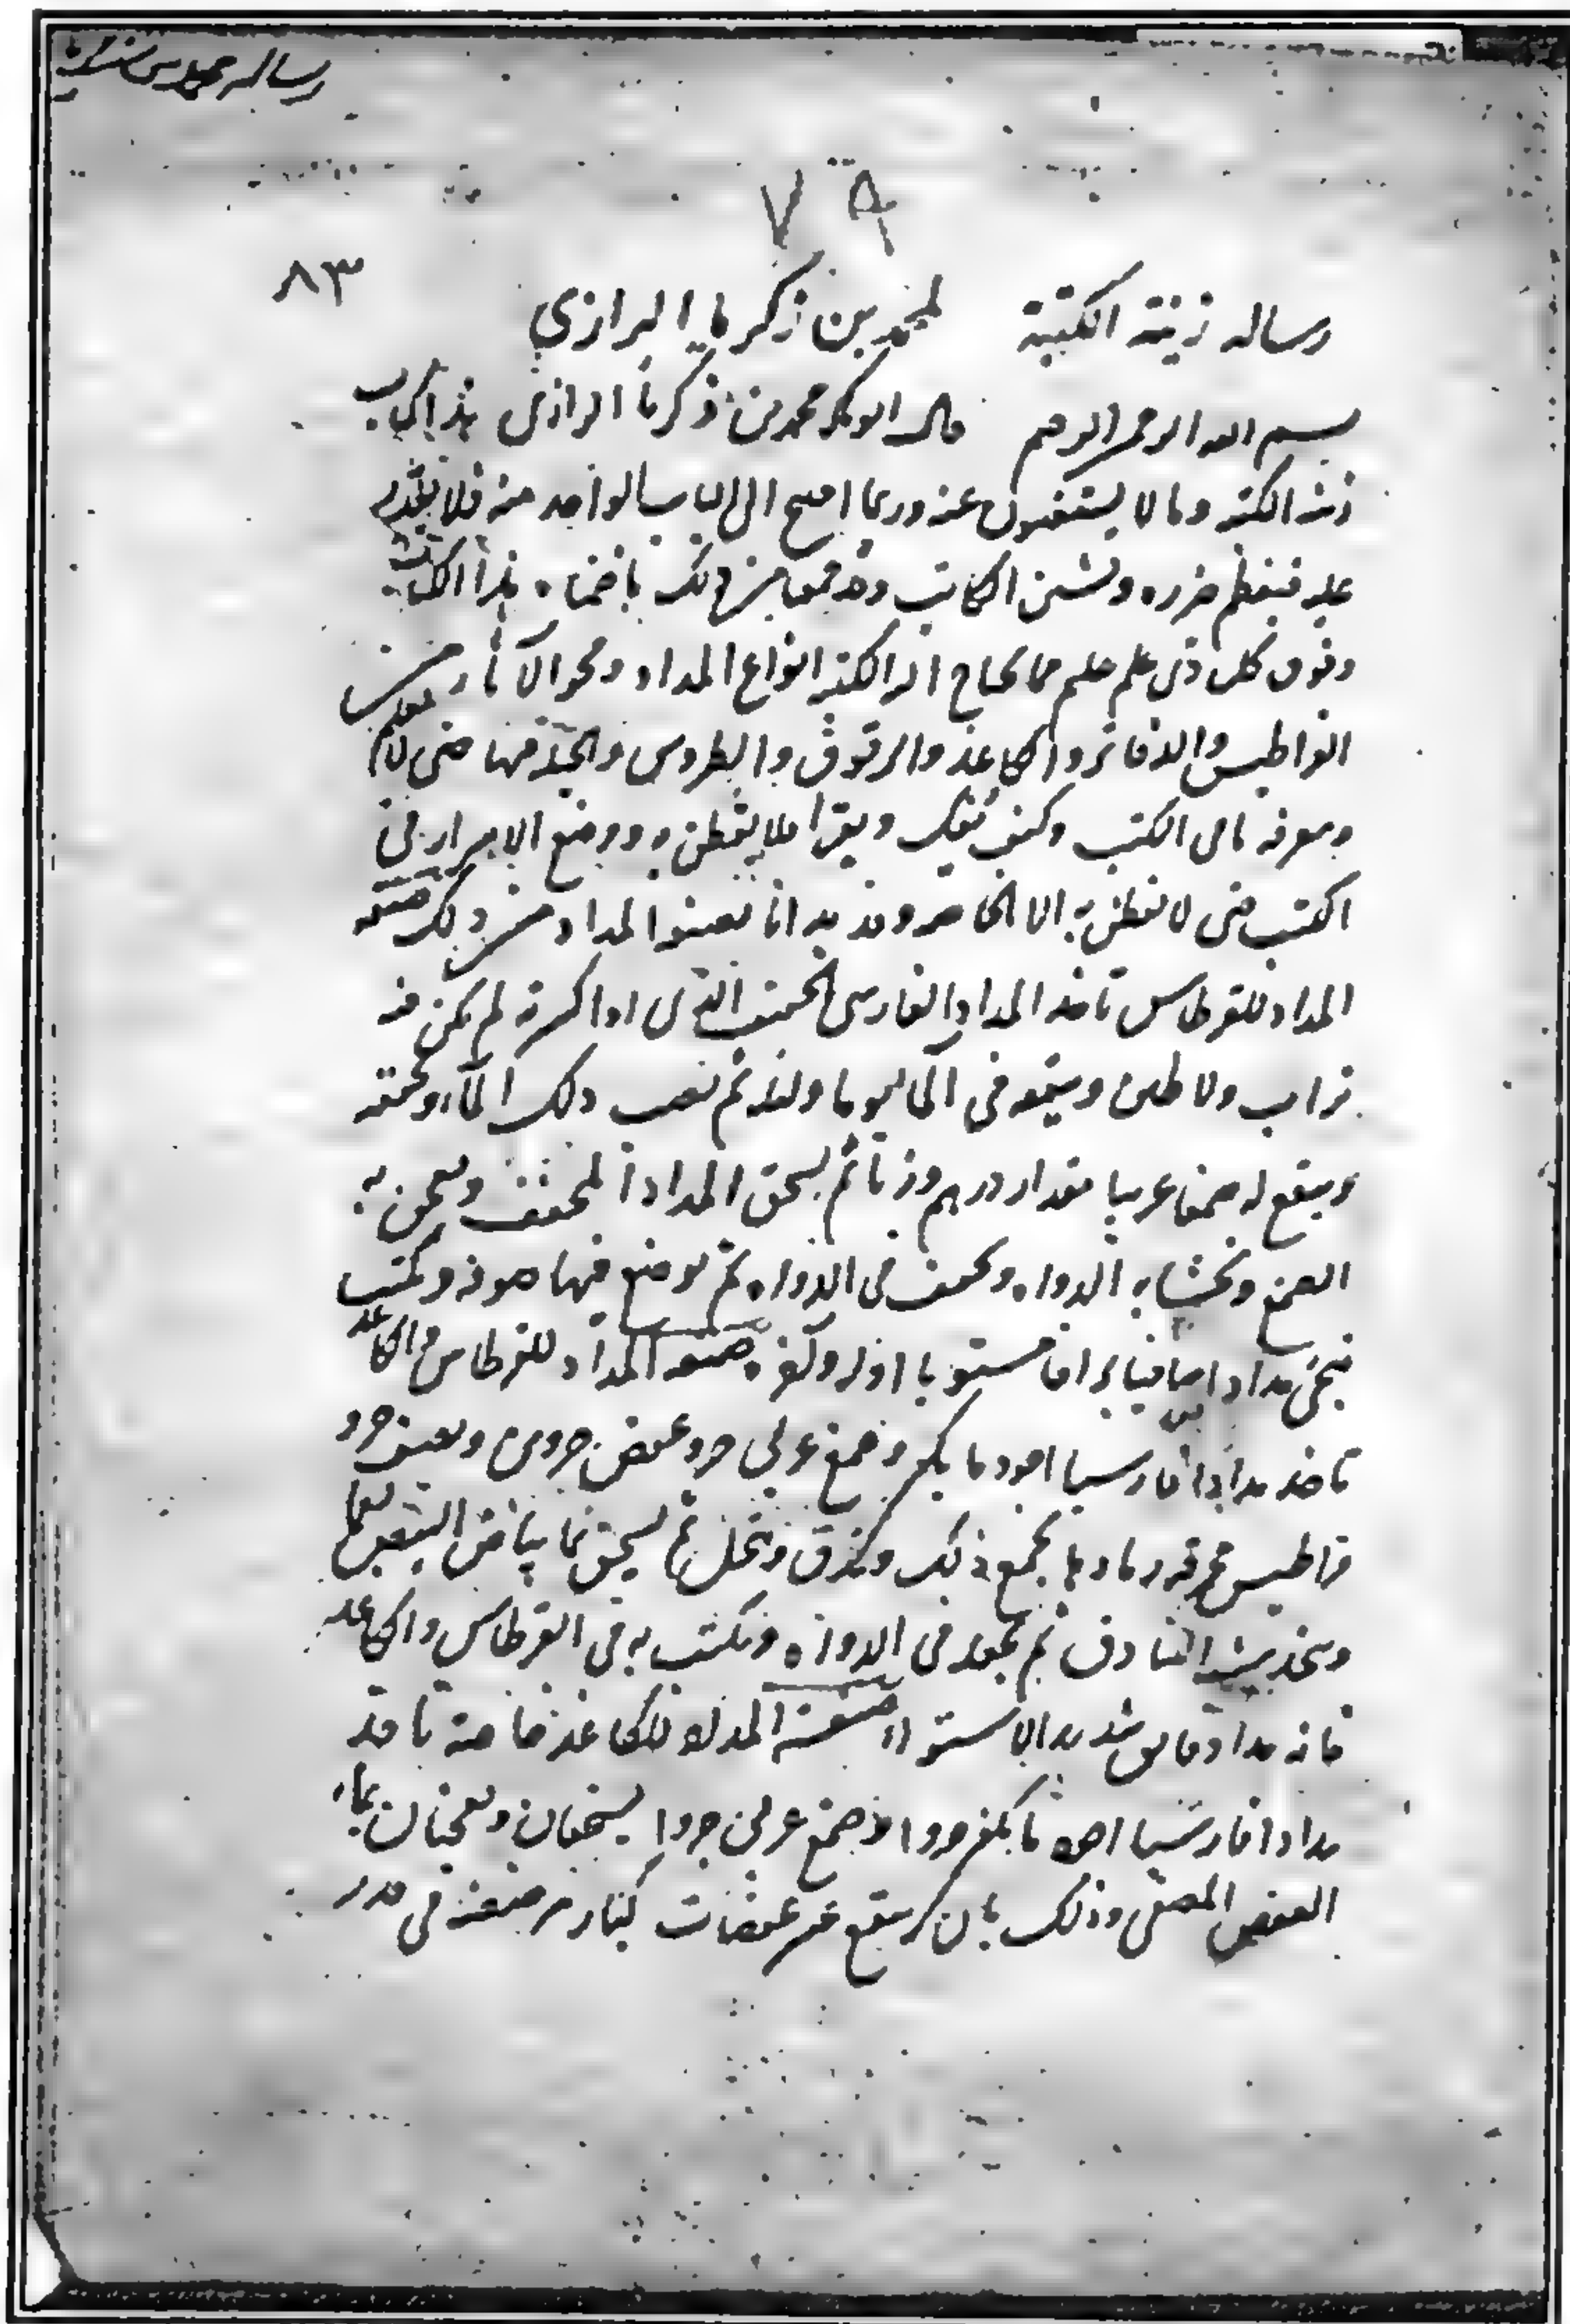 ٧٩
٨٣
رساله زينة الكتبة لمحمد بن زكريا الرازي
بسم الله الرحمن الرحيم قال ابو بكر محمد بن زكريا الرازى هذا كتاب
زينة الكتبة وما لا يستغنون عنه وربما احتيج الى الباب الواحد منه فلا يقدر
عليه فيعظم ضرره ويشين الكاتب وقد جمعنا من ذلك باختصاره هذا الكتاب
وفوق كل ذى علم عليم مما يحتاج اليه الكتبة انواع المداد ومحو الآثار من
القراطيس والدفاتر والكاغذ والرقوق والطروس والجيد منها حتى لا يعلم
ومعرفة ما فى الكتب وكيف يفك ويقرا فلا يفطن به ووضع الاسرار فى
الكتب حتى لا يفطن به الا الخاصه وقد بدانا بصنعة المداد من ذلك صنعة
المداد للقرطاس تاخذ المداد الفارسى الخفيف الذى اذا كسرته لم يكن فيه
تراب ولا طين وينقع فى الماء يوما وليلة ثم تصب ذلك الماء وتجففه
وينقع له صمغا عربيا مقدار درهم وزنا ثم يسحق المداد المجفف ويعجن به
الصمغ وتحشا به الدواه ويجفف فى الدواه ثم توضع فيها صوفه وتكتب
فيجئ مدادا صافيا براقا مستويا اوله وآخره صنعة المداد للقرطاس والكاغد
تاخذ مدادا فارسيا اجود ما يكون وصمغ عربى جزو عفص جزوين ونصف جزو
قراطيس محرقه رمادها يجمع ذلك ويدق وينخل ثم يسحق بماء بياض البيض
ويتخذ شبه البنادق ثم يجعل فى الدواة وتكتب به فى القرطاس والكاغد
فانه مداد فايق شديد الاستواء صنعة المداد للكاغذ خاصة تاخذ
مدادا فارسيا اجود ما يكون جزوا وصمغ عربى جزوا يسحقان ويعجنان بماء
العفص المصفى وذلك بان ينقع عشر عفصات كبار مرضضة فى قدر